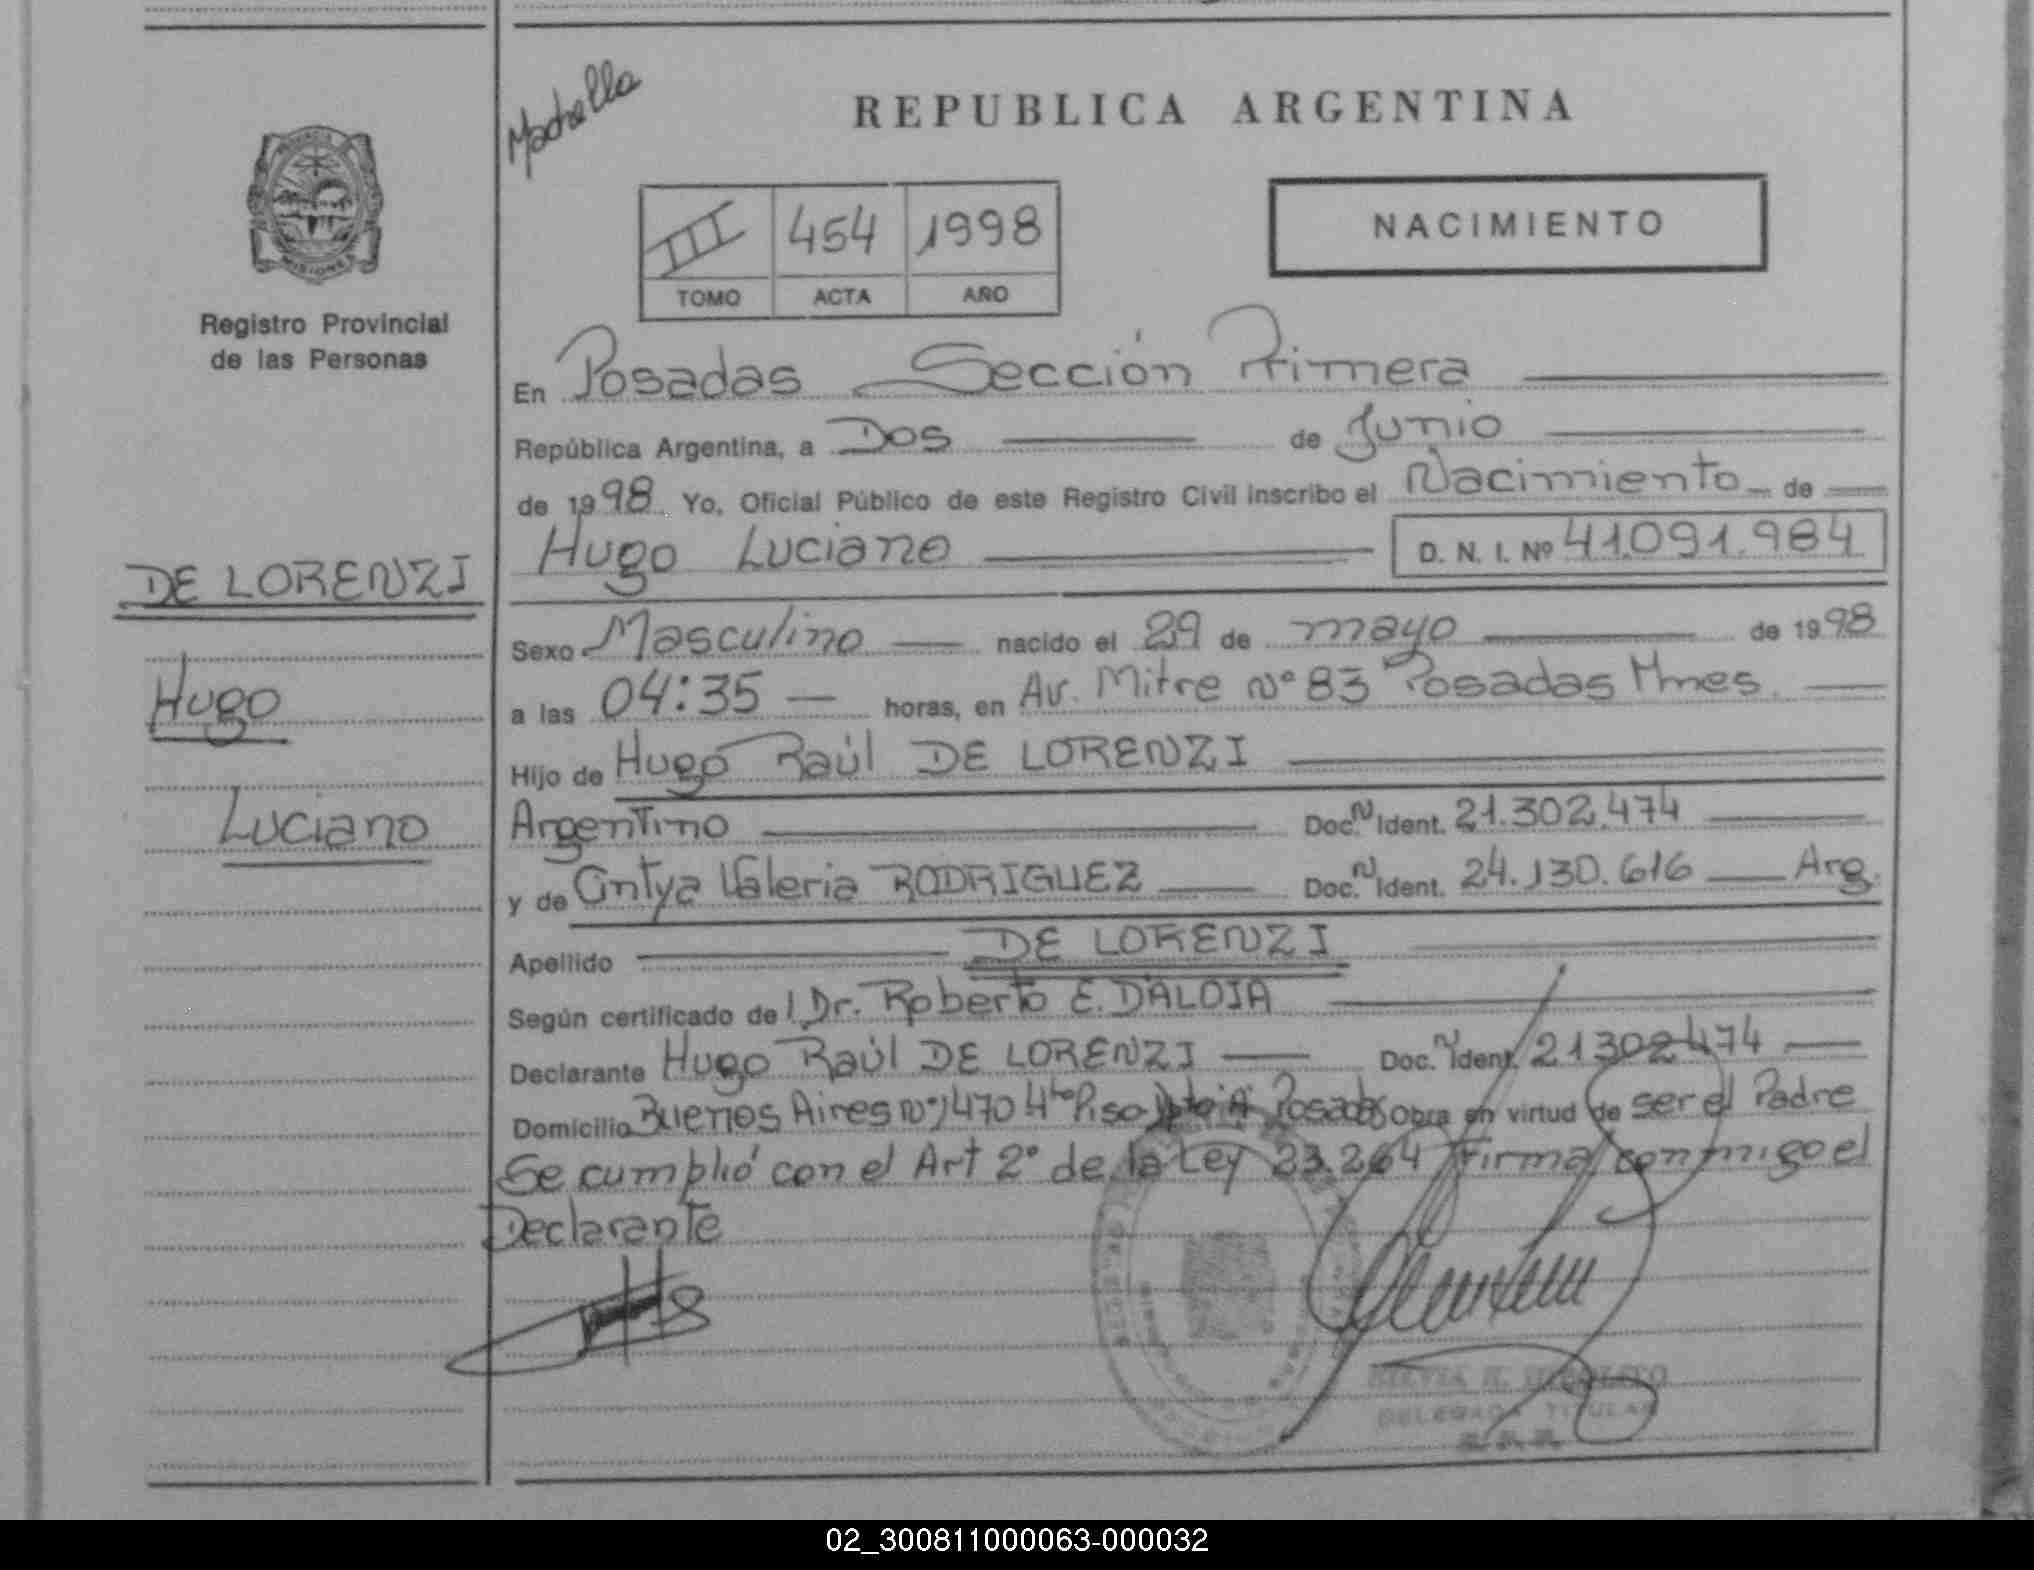 Machella
REPUBLICA ARGENTINA
PROVINCIA
MISIONES
III 454 1998
TOMO ACTA AÑO
NACIMIENTO
Registro Provincial
de las Personas
En Posadas Sección Primera
República Argentina, a Dos de Junio
de 1998 Yo, Oficial Público de este Registro Civil inscribo el Nacimiento de
Hugo Luciano D. N. I. Nº 41.091.984
DE LORENZI
Sexo Masculino nacido el 29 de mayo de 1998
Hugo
a las 04:35 horas, en Av. Mitre Nº 83 Posadas Mnes.
Hijo de Hugo Raúl DE LORENZI
Luciano
Argentino Doc. N Ident. 21.302.474
y de Cintya Valeria RODRIGUEZ Doc. N Ident. 24.130.616 Arg.
Apellido DE LORENZI
Según certificado del Dr. Roberto E. D'ALOIA
Declarante Hugo Raúl DE LORENZI Doc. N Ident. 21302474
Domicilio Buenos Aires Nº 1470 4to Piso Dpto A Posadas Obra en virtud de ser el Padre
Se cumplió con el Art 2º de la Ley 23.264 Firma conmigo el
Declarante
DELEGADA TITULAR
02_300811000063-000032